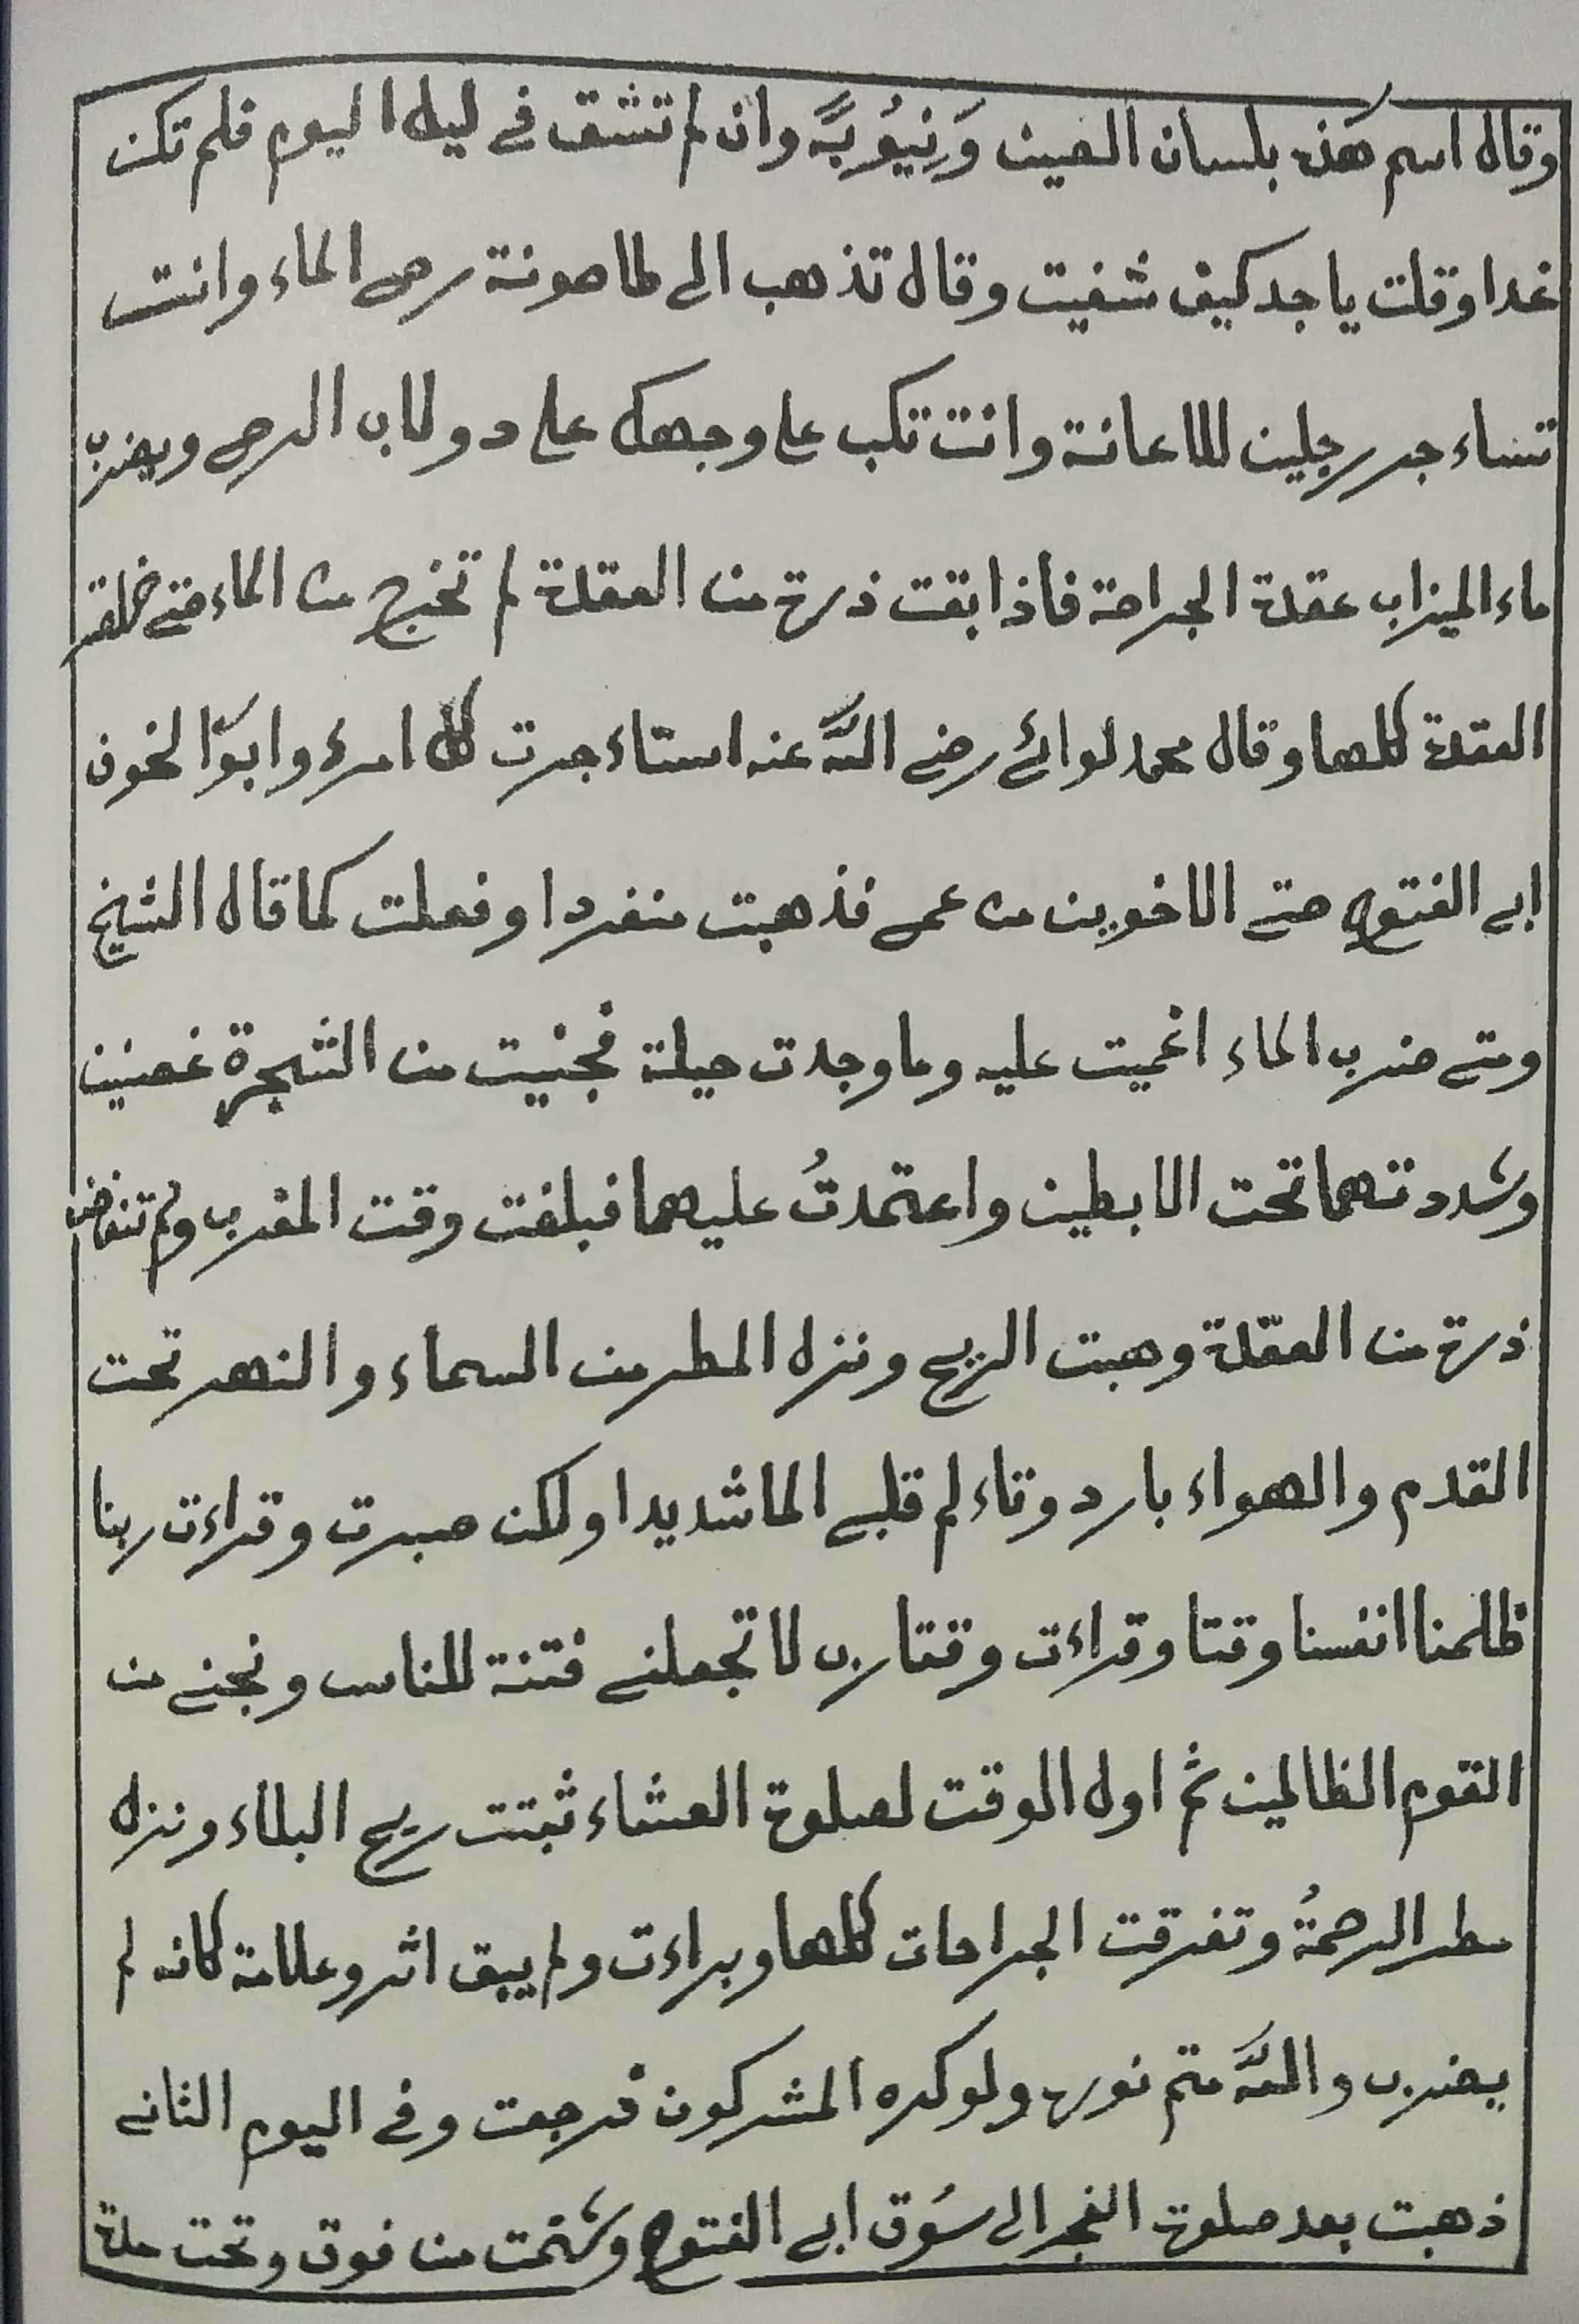 وقال اسم هذه بلسان الصين وَنِيوُبَهً وان لم تشق في ليله اليوم فلم تكن
غدا وقلت يا جد كيف شفيت وقال تذهب الى طاحونة رحى الماء وانت
تستاءجر رجلين للاعانة وانت تكب على وجهك على دولاب الرحى ويضرب
ماء الميزاب عقدة الجراحة فاذا بقت ذرة من العقدة لم تخرج من الماء حتى
العقدة كلها وقال محمد لوائى رضى اللّه عنه استاءجرت كل امرء وابوّا الخون
ابى الفتوح حتى الاخوين من عمى فذهبت منفردا وفعلت كما قال الشيخ
ومتى ضرب الماء اغميت عليه وما وجدت حيلة فجنيت من الشجرة غصنين
وشددتهما تحت الابطين واعتمدتُ عليهما فبلغت وقت المغرب ولم
ذرة من العقدة وهبت الريح ونزل المطر من السماء والنهر تحت
القدم والهواء بارد وتاءلم قلبى الما شديدا ولكن صبرت وقراءت ربنا
ظلمنا انفسنا وقتا وقراءت وقتا رب لا تجعلنى فتنة للناس ونجنى من
القوم الظالمين ثم اول الوقت لصلوة العشاء ثبتت ريح البلاء ونزل
مطر الرحمةُ وتفرقت الجراحات كلها وبراءت ولم يبق اثر وعلامة كانه لم
يضرب واللّه متم نوره ولو كره المشركون فرجعت وفى اليوم الثانى
ذهبت بعد صلوة الفجر الى سُوق ابى الفتوح وشتمت من فوق وتحت